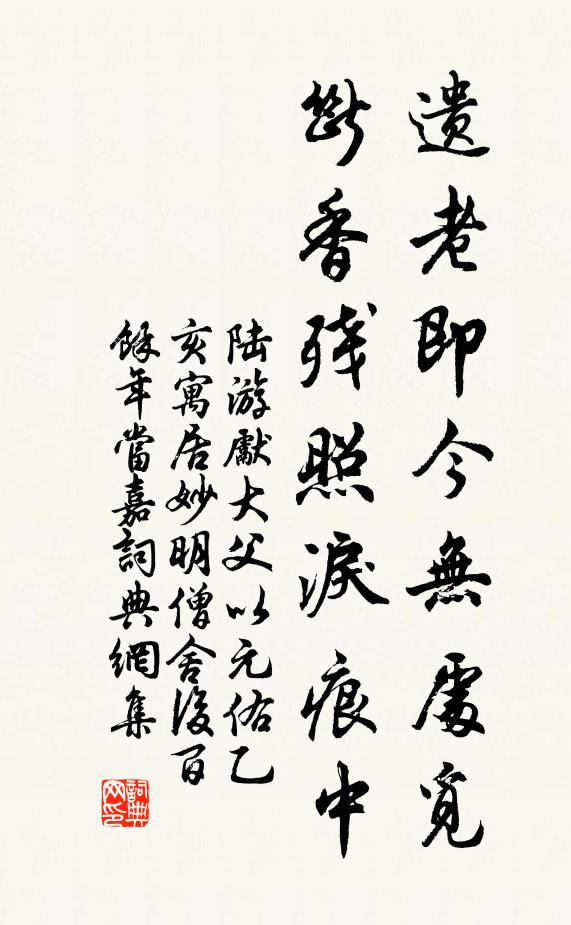 遺老即今無處覓
斷香殘照淚痕中
陸游獻大父以元佑乙
亥寓居妙明僧舍後百
餘年當嘉詞典網集
詞典网印